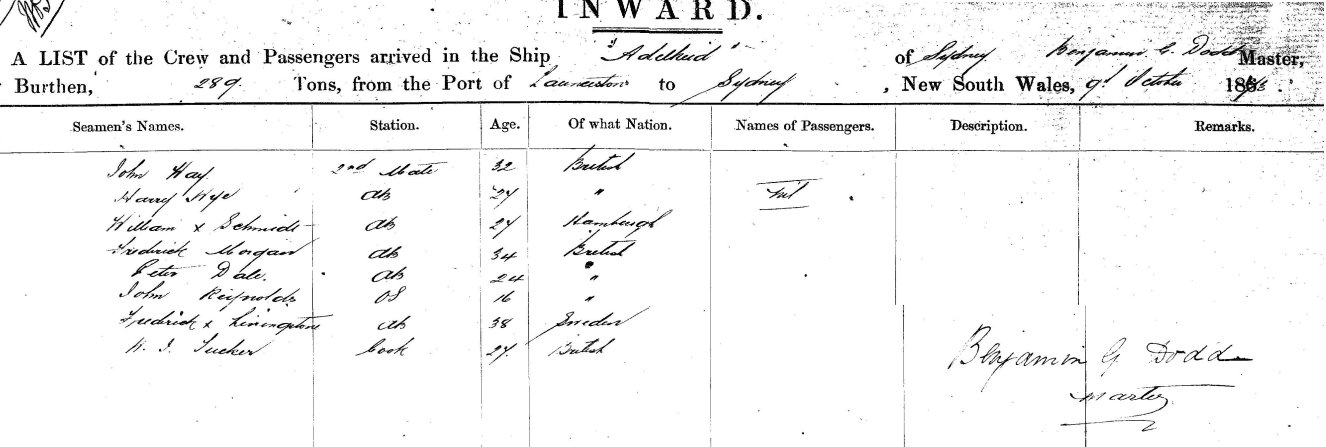 INWARD.
A LIST of the Crew and Passengers arrived in the Ship "Adelheid" of Sydney Benjamin G. Dodd Master,
Burthen, 289 Tons, from the Port of Launceston to Sydney, New South Wales, 9th October 186
Seamen's Names. Station. Age. Of what Nation. Names of Passengers. Description. Remarks.
John Hay 2nd Mate 32 British
Harry Nye AB 27 " Nil
William x Schmidt AB 27 Hamburgh
Fredrick Morgan AB 34 British
Peter Dale. AB 24 "
John Reynolds OS 16 "
Fredrick x Livingstone AB 38 Sweden
Tucker Cook 27 British
Benjamin G Dodd
Master